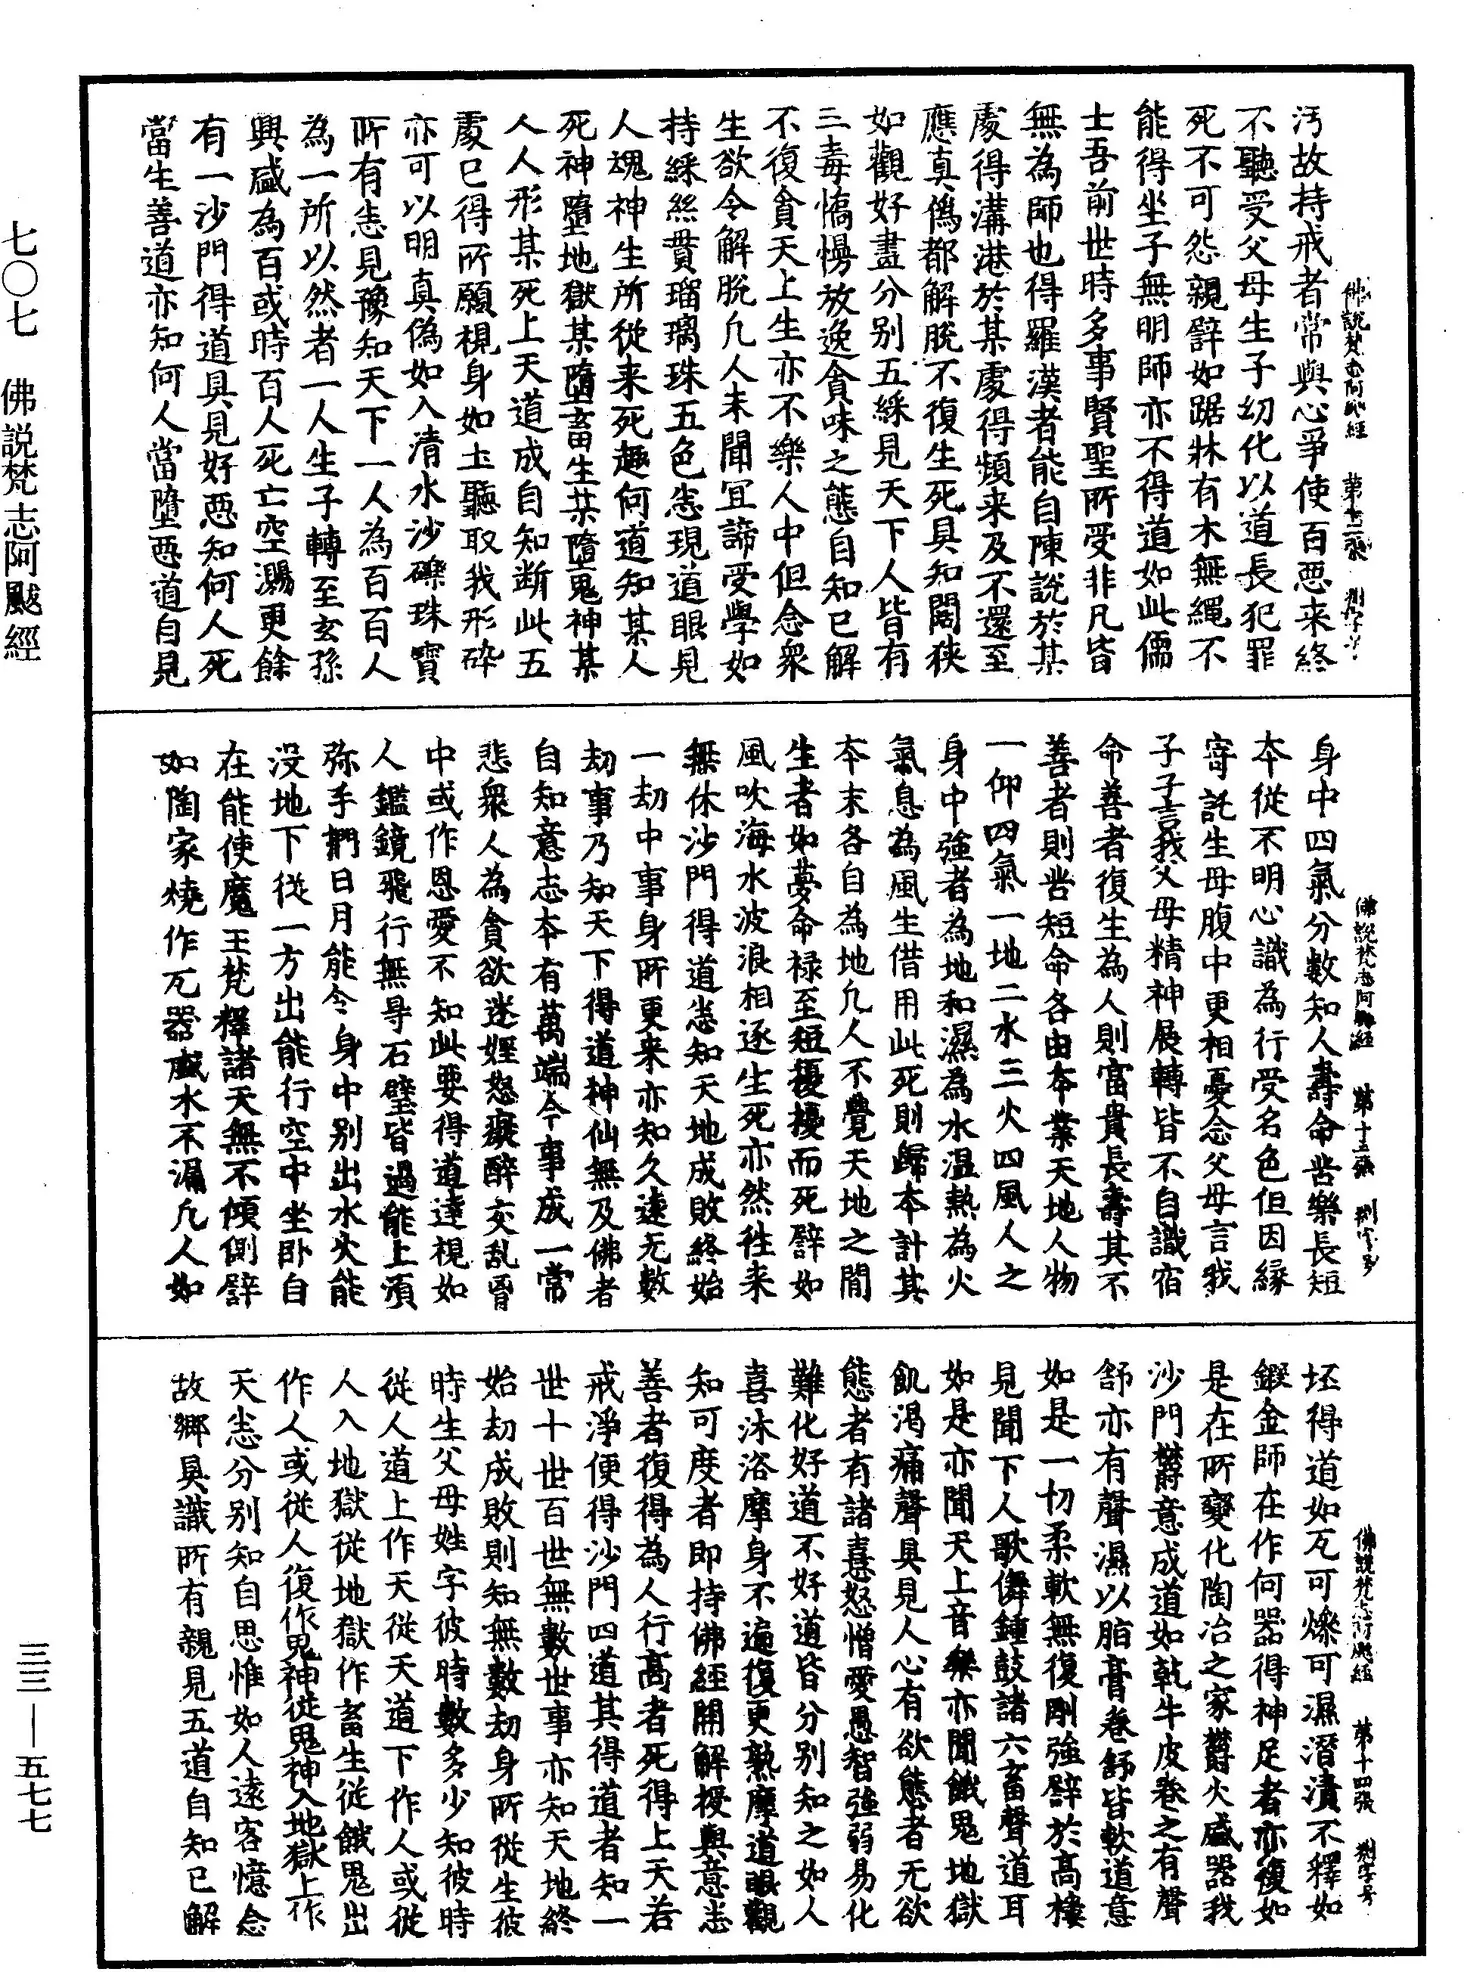 汚故持戒者常與心爭使百惡来終
不聽受父母生子幼化以道長犯罪
死不可怨親譬如踞牀有木無繩不
能得坐子無明師亦不得道如此儒
士吾前世時多事賢聖所受非凡皆
無為師也得羅漢者能自陳說於某
處得溝港於某處得頻来及不還至
應真僞都解脫不復生死具知闊狹
如觀好畫分别五綵見天下人皆有
三毒憍慢放逸貪味之態自知已解
不復貪天上生亦不樂人中但念衆
生欲令解脫凡人未聞宜諦受學如
持綵絲貫瑠璃珠五色悉現道眼見
人魂神生所從来死趣何道知某人
死神墮地獄某墮畜生某墮鬼神某
人人形某死上天道成自知断此五
處已得所願視身如土聽取我形碎
亦可以明真偽如入清水沙礫珠寶
所有悉見豫知天下一人為百百人
為一所以然者一人生子轉至玄孫
興盛為百或時百人死亡空漏更餘
有一沙門得道具見好惡知何人死
當生善道亦知何人當墮惡道自見
佛說梵志阿颰經 第十二張 㓝字号
身中四氣分數知人壽命苦樂長短
本從不明心識為行受名色但因緣
寄託生母腹中更相憂念父母言我
子子言我父母精神展轉皆不自識宿
命善者復生為人則富貴長壽其不
善者則苦短命各由本業天地人物
一仰四氣一地二水三火四風人之
身中強者為地和濕為水温熱為火
氣息為風生借用此死則歸本計其
本末各自為地凡人不覺天地之間
生者如夢命禄至短擾擾而死譬如
風吹海水波浪相逐生死亦然徃来
無休沙門得道悉知天地成敗終始
一劫中事身所更来亦知久遠无數
劫事乃知天下得道神仙無及佛者
自知意志本有萬端今事成一常
悲衆人為貪欲迷婬怒癡醉交乱㫺
中或作恩愛不知此要得道達視如
人鑑鏡飛行無㝵石壁皆過能上湏
弥手捫日月能令身中别出水火能
没地下從一方出能行空中坐卧自
在能使魔王梵釋諸天無不傾側譬
如陶家燒作瓦器盛水不漏凡人如
佛說梵志阿颰經 第十三張 㓝字号
坯得道如瓦可爍可濕潛漬不釋如
鍜金師在作何器得神足者亦復如
是在所變化陶冶之家欝火盛器我
沙門欝意成道如乾牛皮卷之有聲
舒亦有聲濕以脂膏卷舒皆軟道意
如是一切柔軟無復剛強譬於高樓
見聞下人歌儛鍾鼓諸六畜聲道耳
如是亦聞天上音樂亦聞餓鬼地獄
飢渴痛聲具見人心有欲態者无欲
態者有諸憙怒憎愛愚智強弱易化
難化好道不好道皆分别知之如人
喜沐浴摩身不遍復更熟摩道眼觀
知可度者即持佛經開解授與意志
善者復得為人行高者死得上天若
戒淨便得沙門四道其得道者知一
世十世百世無數世事亦知天地終
始劫成敗則知無數劫身所從生彼
時生父母姓字彼時數多少知彼時
從人道上作天從天道下作人或從
人入地獄從地獄作畜生從餓鬼出
作人或從人復作鬼神從鬼神入地獄上作
天悉分别知自思惟如人遠客憶念
故鄉具識所有親見五道自知已解
佛說梵志阿颰經 第十四張 㓝字号
七〇七 佛説梵志阿颰經
三三—五七七